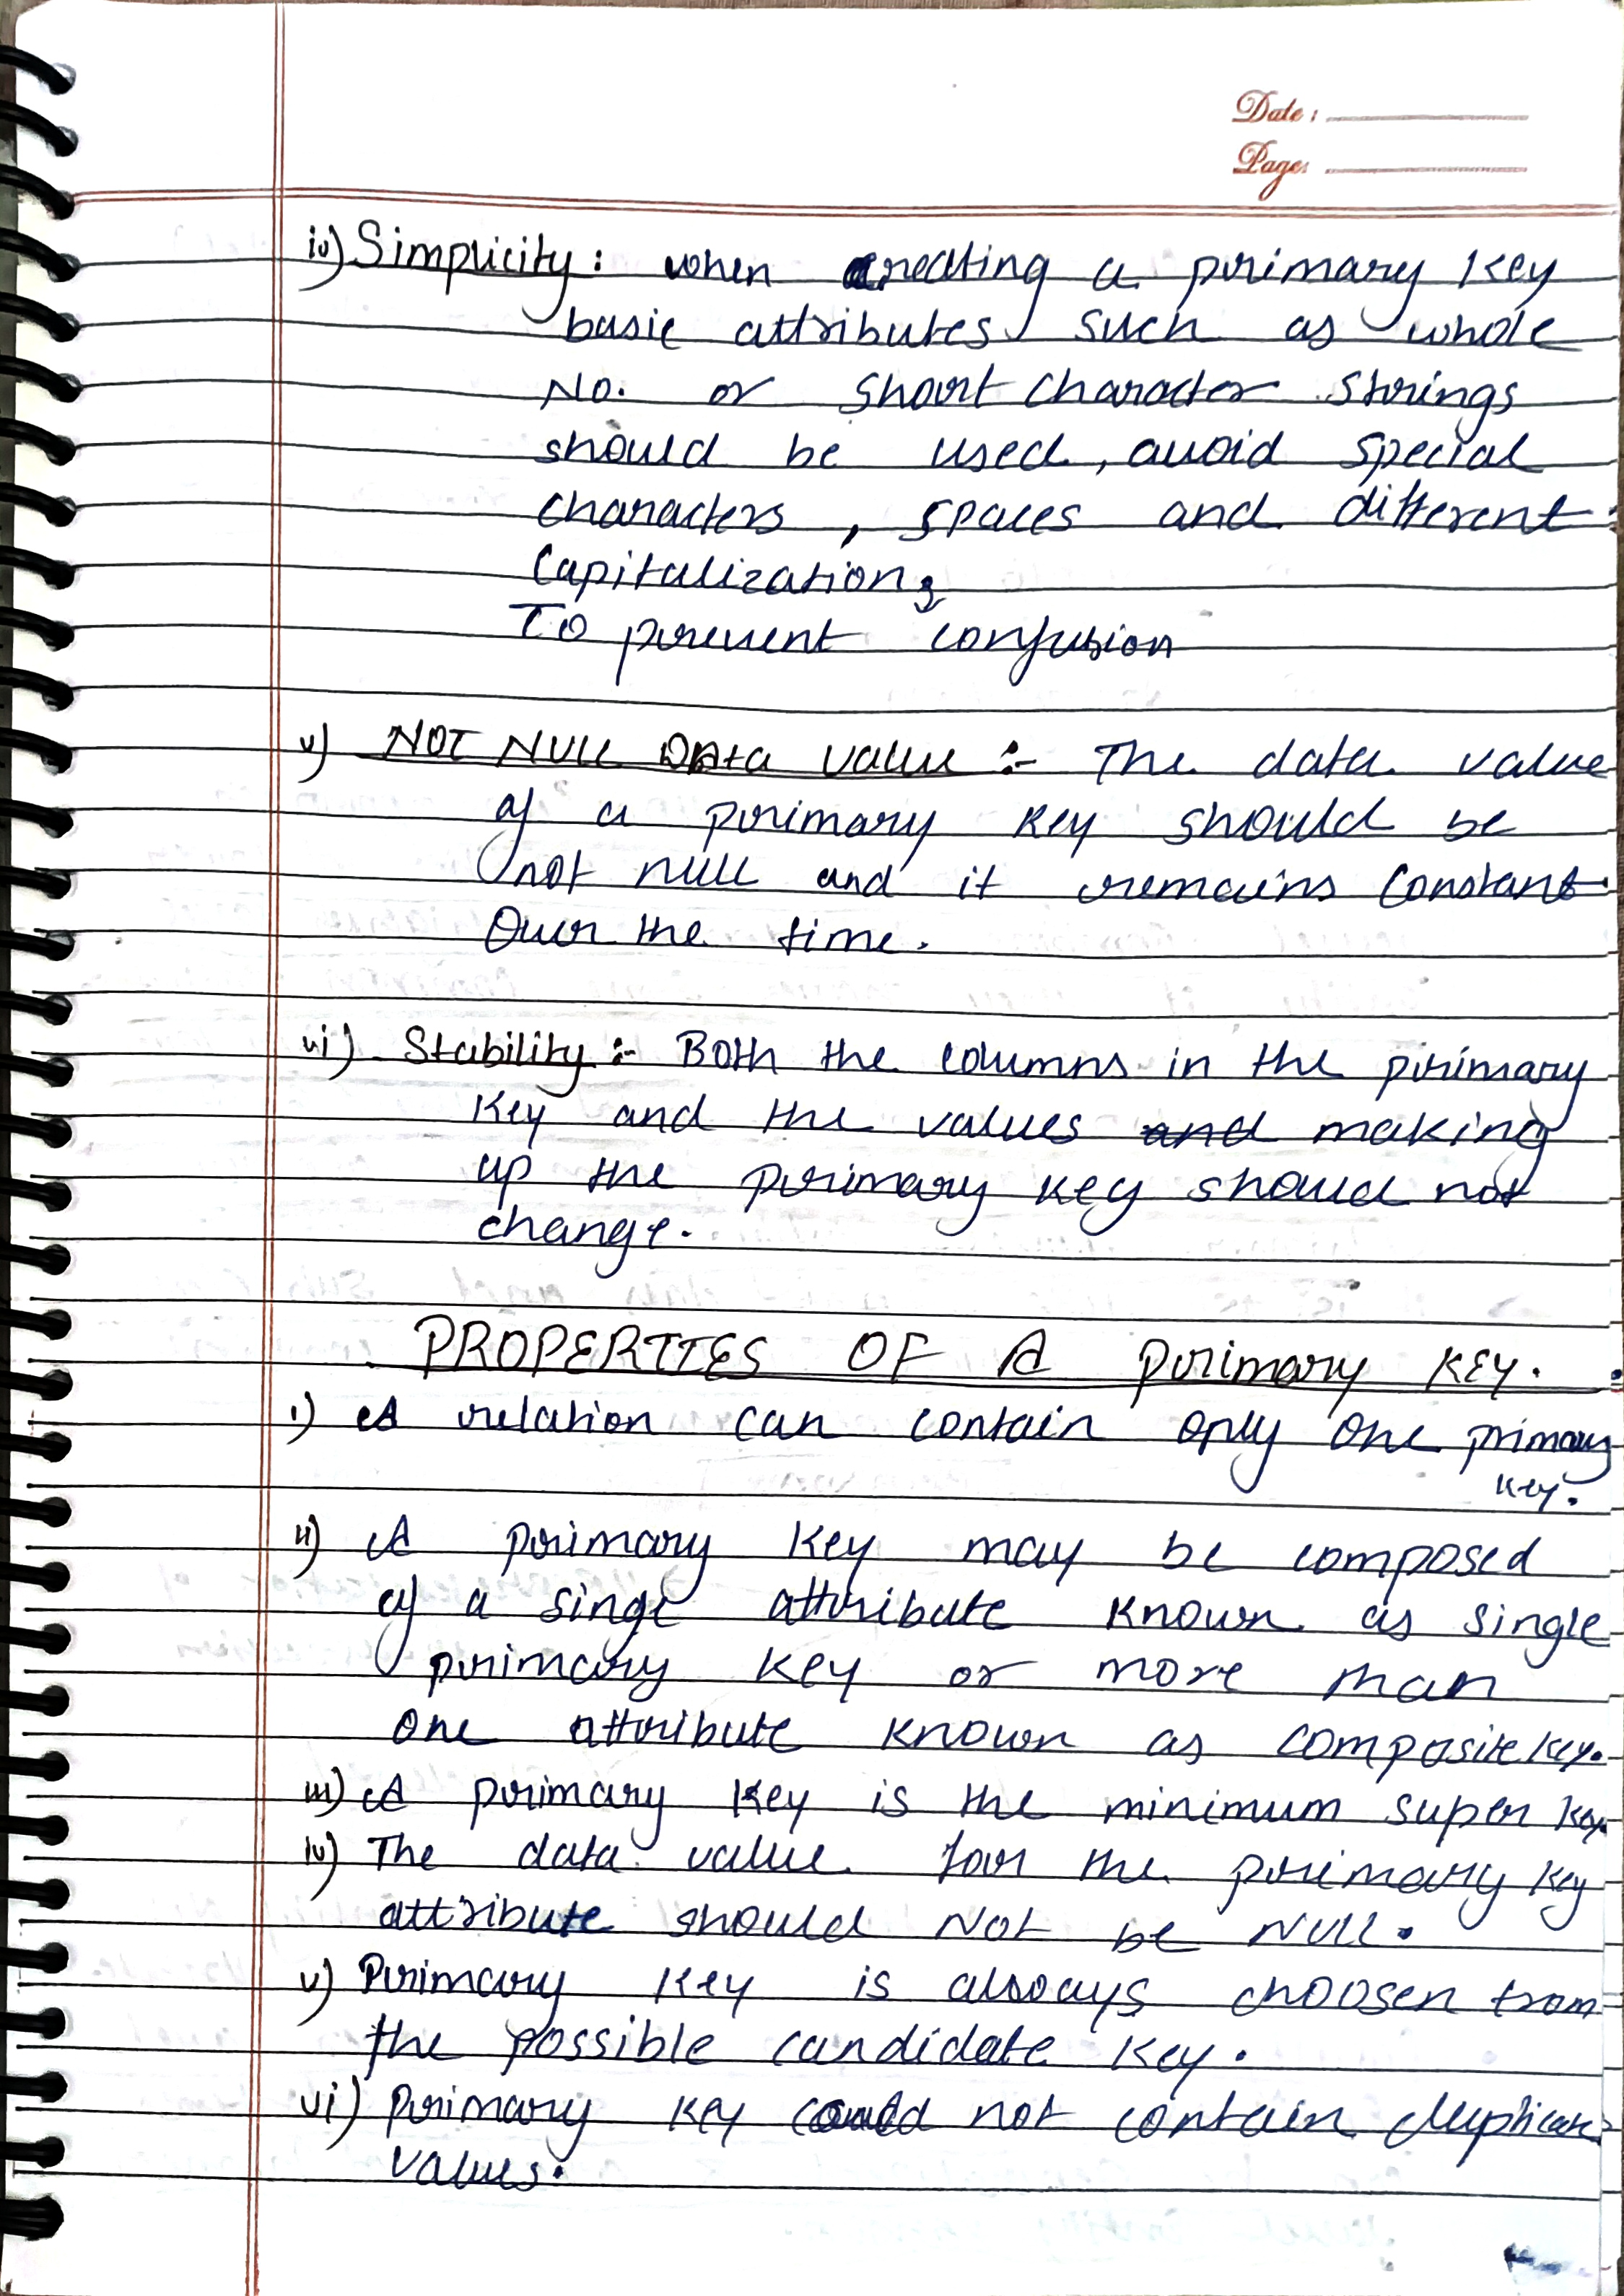 Date :
Page:
iv) Simplicity : when creating a primary key
basic attributes such as whole
No. or short character strings
should be used, avoid special
characters, spaces and different
Capitalization,
To prevent confusion
v) NOT NULL Data value :- The data value
of a primary key should be
not null and it remains constant
Over the time.
vi) Stability :- Both the columns in the primary
key and the values and making
up the primary key should not
change.
PROPERTIES OF A primary KEY.
i) A relation can contain only one primary
key.
ii) A primary key may be composed
of a singe attribute known as single
primary key or more than
one attribute known as composite key.
iii) A primary key is the minimum super key.
iv) The data value for the primary key
attribute should NOT be NULL.
v) Primary key is always choosen from
the possible candidate key.
vi) Primary key could not contain duplicate
values.